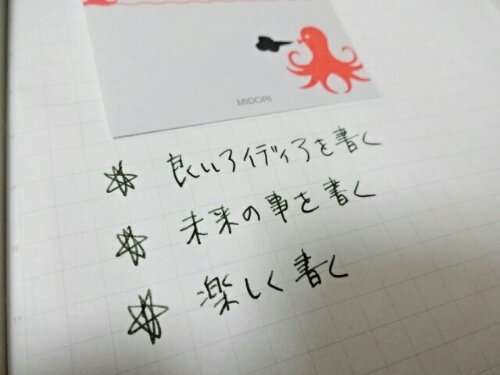 MIDORI
良いアイディアを書く
未来の事を書く
楽しく書く